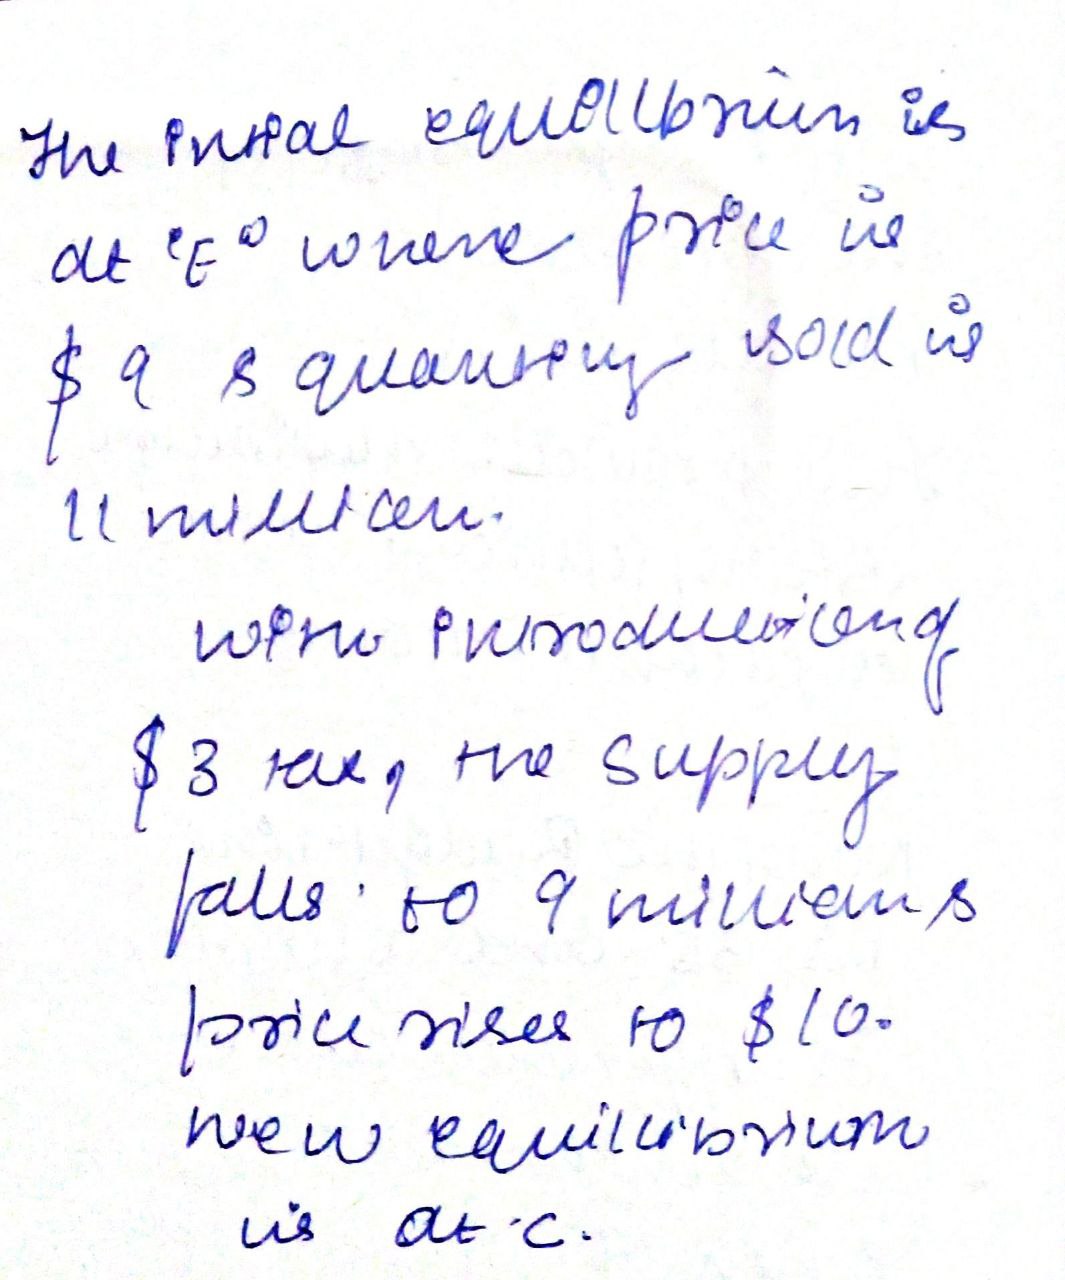 The initial equilibrium is
at 'E' where price is
$ 9 & quantity sold is
11 million.
with introduction of
$ 3 tax, the supply
falls to 9 million &
price rises to $10.
new equilibrium
is at C.